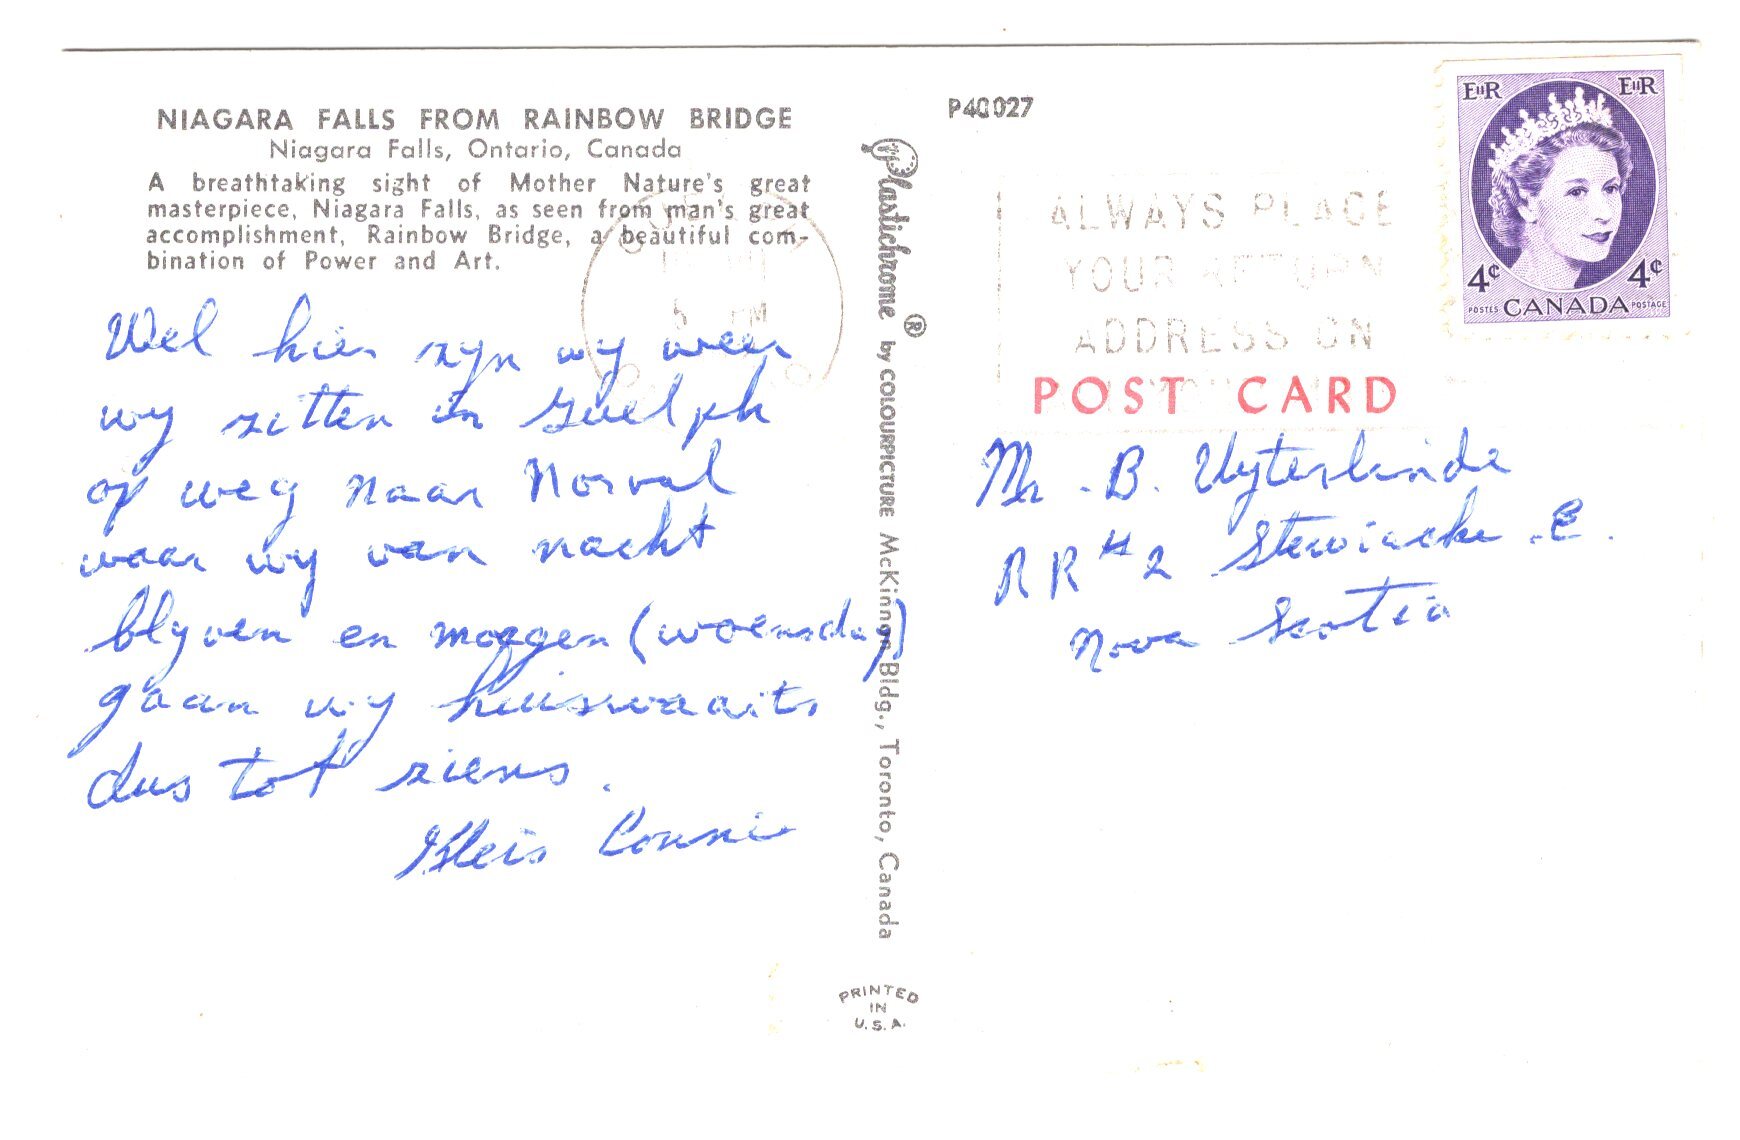 NIAGARA FALLS FROM RAINBOW BRIDGE
Niagara Falls, Ontario, Canada
A breathtaking sight of Mother Nature's great
masterpiece, Niagara Falls, as seen from man's great
accomplishment, Rainbow Bridge, a beautiful com-
bination of Power and Art.
Wel hier zyn wy weer
wy zitten in Guelph
op weg naar Norval
waar wy van nacht
blyven en morgen (woensdag)
gaan wy huiswaarts
dus tot ziens.
Connie
Plastichrome ® by COLOURPICTURE McKinnon Bldg., Toronto, Canada
PRINTED
IN
U.S.A.
P40027
5 PM
ALWAYS PLACE
YOUR RETURN
ADDRESS ON
EIIR EIIR
4¢ 4¢
POSTES CANADA POSTAGE
POST CARD
Mr. B. Uyterlinde
RR #2 Stewiacke .E.
Nova Scotia